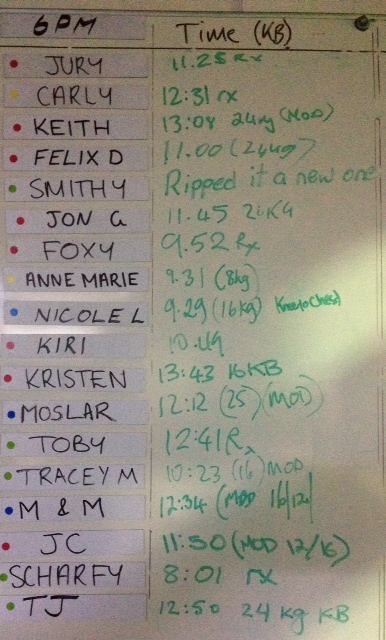 6PM Time (KB)
JURY 11.25 Rx
CARLY 12:31 rx
KEITH 13:08 24kg (MOD)
FELIX D 11.00 (24kg)
SMITHY Ripped it a new one
JON G 11.45 24KG
FOXY 9.52 Rx
ANNE MARIE 9.31 (8kg)
NICOLE L 9.29 (16kg)
KIRI 10.49
KRISTEN 13:43 16KB
MOSLAR 12:12 (25) (MOD)
TOBY 12:41 Rx
TRACEY M 10:23 (16) MOD
M & M 12:34 (MOD 16/12)
JC 11:50 (MOD 12/16)
SCHARFY 8:01 rx
TJ 12:50 24 kg KB